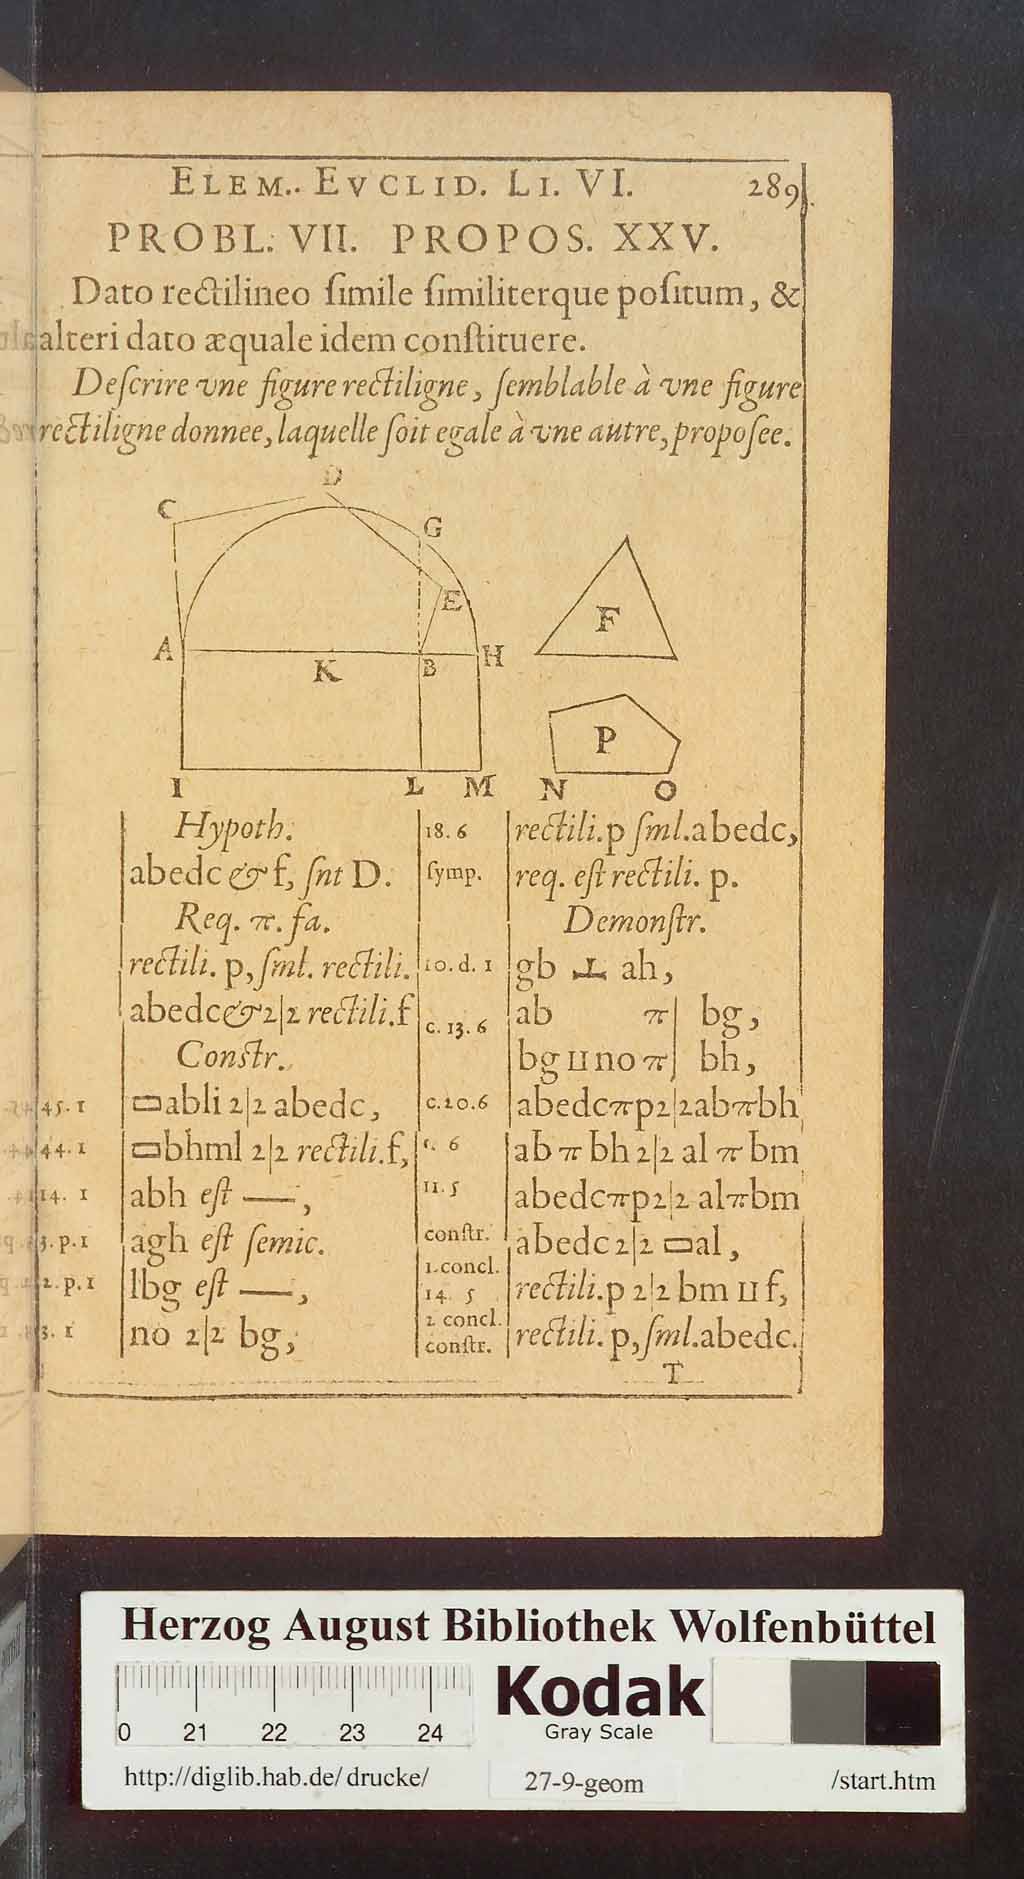 ELEM.. EVCLID. LI. VI. 289.
PROBL. VII. PROPOS. XXV.
Dato rectilineo ſimile ſimiliterque poſitum, &
alteri dato æquale idem conſtituere.
Deſcrire vne figure rectiligne, ſemblable à vne figure
rectiligne donnee, laquelle ſoit egale à vne autre, propoſee.
D
C
G
E
F
A
K
B
H
P
I
L
M
N
O
Hypoth.
abedc & f, ſnt D.
Req. π. fa.
rectili. p, ſml. rectili.
abedc & 2|2 rectili. f
Conſtr.
45. 1 ▭abli 2|2 abedc,
44. 1 ▭bhml 2|2 rectili. f,
14. 1 abh eſt —,
3. p. 1 agh eſt ſemic.
2. p. 1 lbg eſt —,
3. 1 no 2|2 bg,
18. 6 rectili. p ſml. abedc,
ſymp. req. eſt rectili. p.
Demonſtr.
10. d. 1 gb ⊥ ah,
c. 13. 6 ab π | bg,
bg II no π | bh,
c. 20. 6 abedc π p 2|2 ab π bh
6 ab π bh 2|2 al π bm
11. 5 abedc π p 2|2 al π bm
conſtr. abedc 2|2 ▭al,
1. concl.
14. 5 rectili. p 2|2 bm II f,
2 concl.
conſtr. rectili. p, ſml. abedc.
T
Herzog August Bibliothek Wolfenbüttel
Kodak
Gray Scale
0 21 22 23 24
http://diglib.hab.de/drucke/ 27-9-geom /start.htm